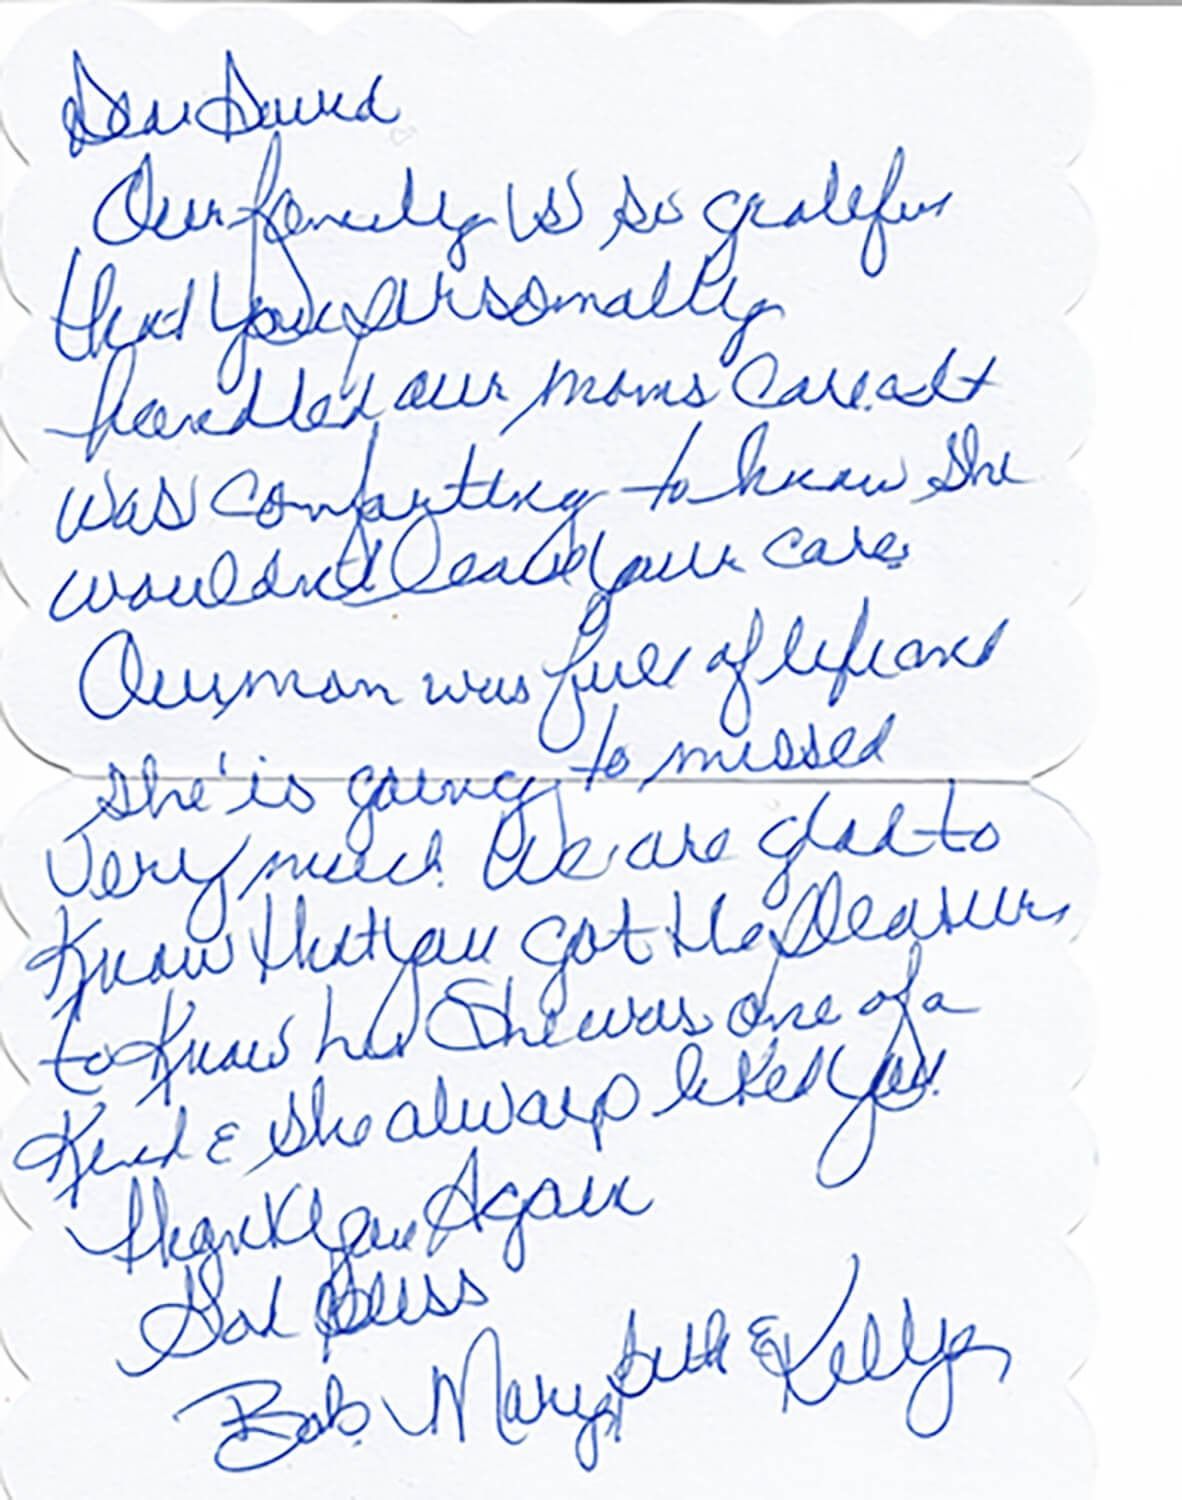 Dear David
Our family is so grateful
that you personally
handled our moms care. It
was comforting to know she
wouldn't leave your care.
Our mom was full of life and
she is going to missed
very much. We are glad to
know that you got the pleasure
to know her She was one of a
Kind & she always liked you.
Thank You Again
God Bless
Bob, Mary, Beth & Kellye